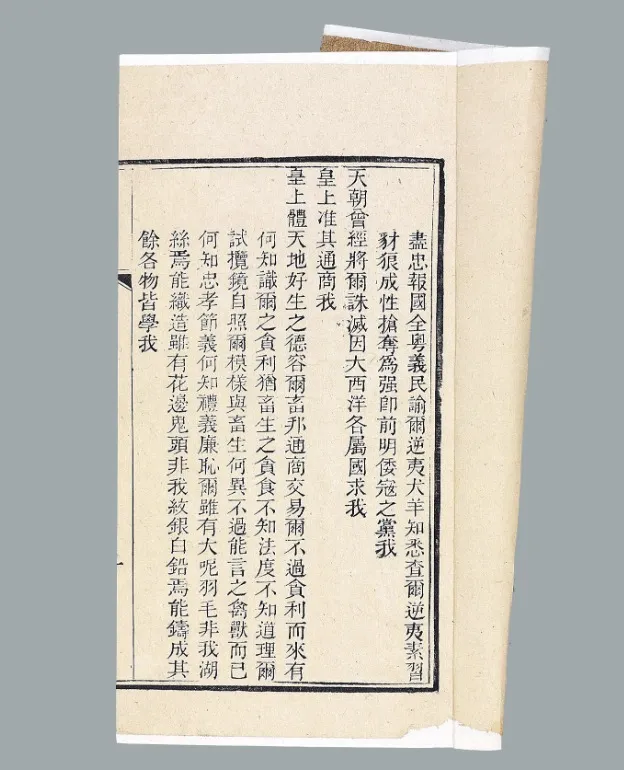 盡忠報國全粵義民諭爾逆夷犬羊知悉查爾逆夷素習
豺狼成性搶奪爲强即前明倭寇之黨我
天朝曾經將爾誅滅因大西洋各屬國求我
皇上准其通商我
皇上體天地好生之德容爾畜邦通商交易爾不過貪利而來有
何知識爾之貪利猶畜生之貪食不知法度不知道理爾
試攬鏡自照爾模樣與畜生何異不過能言之禽獸而已
何知忠孝節義何知禮義廉恥爾雖有大呢羽毛非我湖
絲焉能織造雖有花邊鬼頭非我紋銀白鉛焉能鑄成其
餘各物皆學我